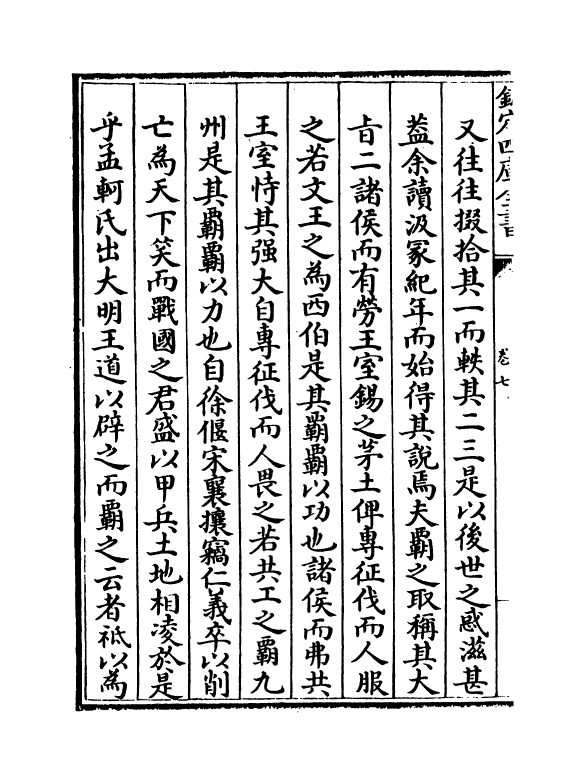 欽定四庫全書
卷七
又往往掇拾其一而軼其二三是以後世之惑滋甚
葢余讀汲冡紀年而始得其說焉夫覇之取稱其大
㫖二諸侯而有勞王室錫之茅土俾專征伐而人服
之若文王之為西伯是其覇覇以功也諸侯而弗共
王室恃其强大自專征伐而人畏之若共工之覇九
州是其覇覇以力也自徐偃宋襄攘竊仁義卒以削
亡為天下笑而戰國之君盛以甲兵土地相凌於是
乎孟軻氏出大明王道以辟之而覇之云者祗以為